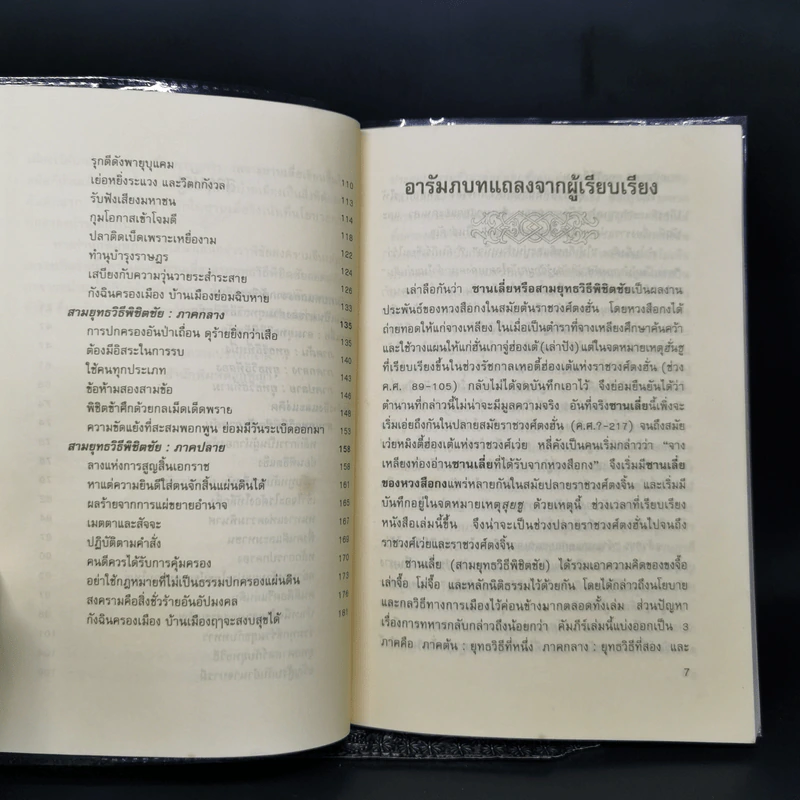 รุกดีดังพายุบุแคม
เย่อหยิ่งระแวง และวิตกกังวล 110
รับฟังเสียงมหาชน 112
กุมโอกาสเข้าโจมตี 114
ปลาติดเบ็ดเพราะเหยื่องาม 118
ทำนุบำรุงราษฎร 122
เสบียงกับความวุ่นวายระส่ำระสาย 124
กังฉินครองเมือง บ้านเมืองย่อมฉิบหาย 126
สามยุทธวิธีพิชิตชัย : ภาคกลาง 133
การปกครองอันป่าเถื่อน ดุร้ายยิ่งกว่าเสือ 135
ต้องมีอิสระในการรบ 140
ใช้คนทุกประเภท 143
ข้อห้ามสองสามข้อ 145
พิชิตข้าศึกด้วยกลเม็ดเด็ดพราย 148
ความขัดแย้งที่สะสมพอกพูน ย่อมมีวันระเบิดออกมา 151
สามยุทธวิธีพิชิตชัย : ภาคปลาย 153
ลางแห่งการสูญสิ้นเอกราช 158
หาแต่ความยินดีใส่ตนจักสิ้นแผ่นดินได้ 161
ผลร้ายจากการแผ่ขยายอำนาจ 165
เมตตาและสัจจะ 167
ปฏิบัติตามคำสั่ง 169
คนดีควรได้รับการคุ้มครอง 170
อย่าใช้กฎหมายที่ไม่เป็นธรรมปกครองแผ่นดิน 173
สงครามคือสิ่งชั่วร้ายอันอัปมงคล 176
กังฉินครองเมือง บ้านเมืองฤๅจะสงบสุขได้ 181
อารัมภบทแถลงจากผู้เรียบเรียง
เล่าลือกันว่า ซานเลี่ยหรือสามยุทธวิธีพิชิตชัยเป็นผลงาน
ประพันธ์ของหวงสือกงในสมัยต้นราชวงศ์ตงฮั่น โดยหวงสือกงได้
ถ่ายทอดให้แก่จางเหลียง ในเมื่อเป็นตำราที่จางเหลียงศึกษาค้นคว้า
และใช้วางแผนให้แก่ฮั่นเกาจู่ฮ่องเต้(เล่าปัง)แต่ในจดหมายเหตุฮั่นซู
ที่เรียบเรียงขึ้นในรัชกาลเหอตี้ฮ่องเต้แห่งราชวงศ์ตงฮั่น (ช่วง
ค.ศ. 89-105) กลับไม่ได้จดบันทึกเอาไว้ จึงย่อมยืนยันได้ว่า
ตำนานที่กล่าวนี้ไม่น่าจะมีมูลความจริง อันที่จริงซานเลี่ยนี้เพิ่งจะ
เริ่มเอ่ยถึงกันในปลายสมัยราชวงศ์ตงฮั่น (ค.ศ.?-217) จนถึงสมัย
เว่ยหมิงตี้ฮ่องเต้แห่งราชวงศ์เว่ย หลี่คังเป็นคนเริ่มกล่าวว่า “จาง
เหลียงท่องอ่านซานเลี่ยที่ได้รับจากหวงสือกง” จึงเริ่มมีซานเลี่ย
ของหวงสือกงแพร่หลายกันในสมัยราชวงศ์จิ้น และเริ่มมี
บันทึกอยู่ในจดหมายเหตุสุยซู ด้วยเหตุนี้ ช่วงเวลาที่เรียบเรียง
หนังสือเล่มนี้ขึ้น จึงน่าจะเป็นช่วงปลายราชวงศ์ตงฮั่นไปจนถึง
ราชวงศ์เว่ยและราชวงศ์จิ้น
ซานเลี่ย (สามยุทธวิธีพิชิตชัย) ได้รวมเอาความคิดของขงจื้อ
เล่าจื้อ โม่จื้อ และหลักนิติธรรมไว้ด้วยกัน โดยได้กล่าวถึงนโยบาย
และกลวิธีทางการเมืองไว้ค่อนข้างมากตลอดทั้งเล่ม ส่วนปัญหา
เรื่องการทหารกลับกล่าวถึงน้อยกว่า คัมภีร์เล่มนี้แบ่งออกเป็น 3
ภาคคือ ภาคต้น : ยุทธวิธีที่หนึ่ง ภาคกลาง : ยุทธวิธีที่สอง และ
7